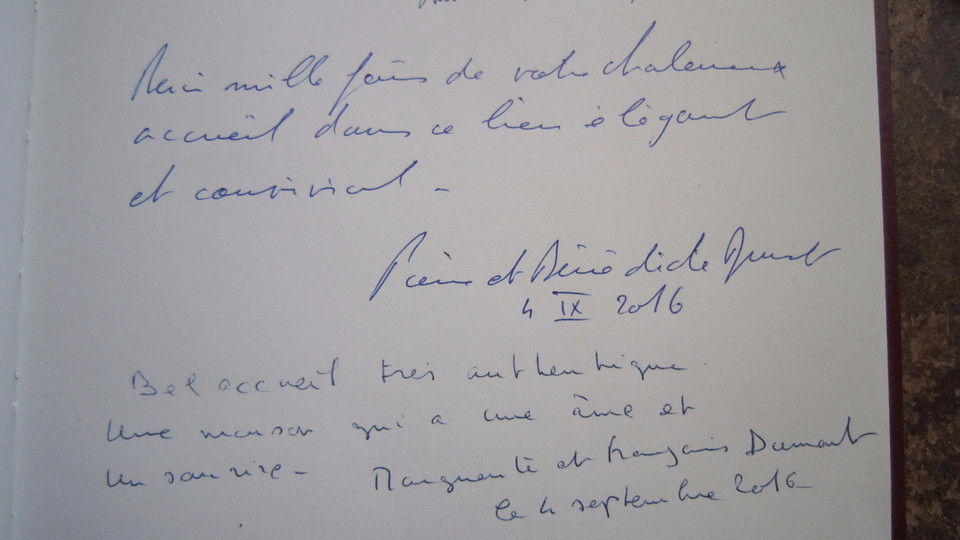 Merci mille fois de votre chaleureux
accueil dans ce lieu élégant
et convivial -
Pierre et Bénédicte
4 IX 2016
Bel accueil très authentique.
Une maison qui a une âme et
un sourire -
Marguerite et François Dumont
le 4 septembre 2016